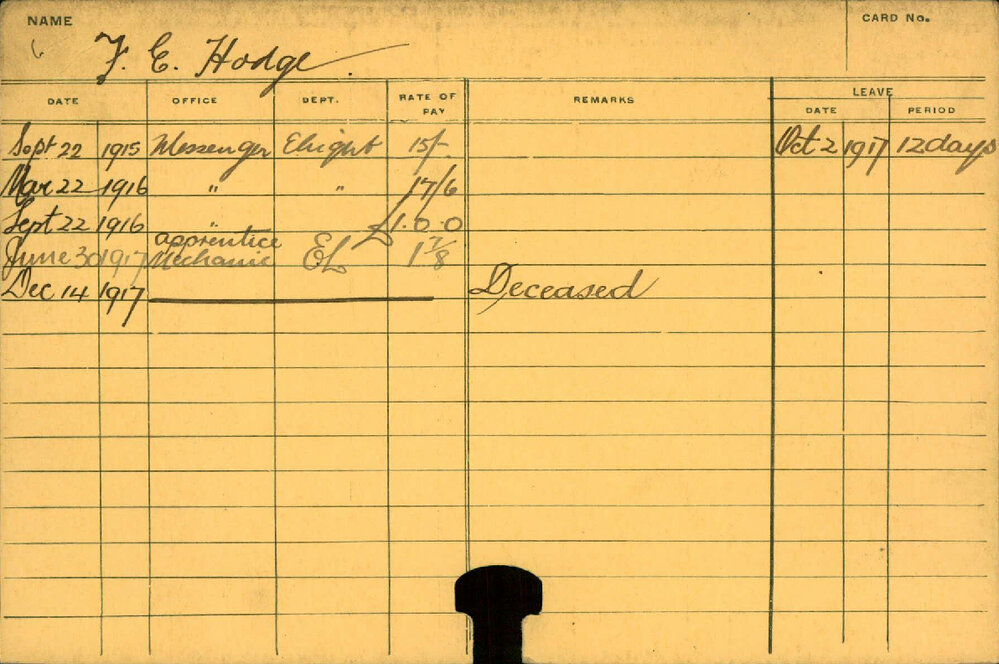 NAME
F. E. Hodge
CARD No.
DATE OFFICE DEPT. RATE OF PAY REMARKS LEAVE
DATE PERIOD
Sept 22 1915 Messenger Elright 15/- Oct 2 1917 12 days
Mar 22 1916 " " 17/6
Sept 22 1916 " £1.0.0
apprentice
June 30 1917 Mechanic EL 1 7/8
Dec 14 1917 Deceased